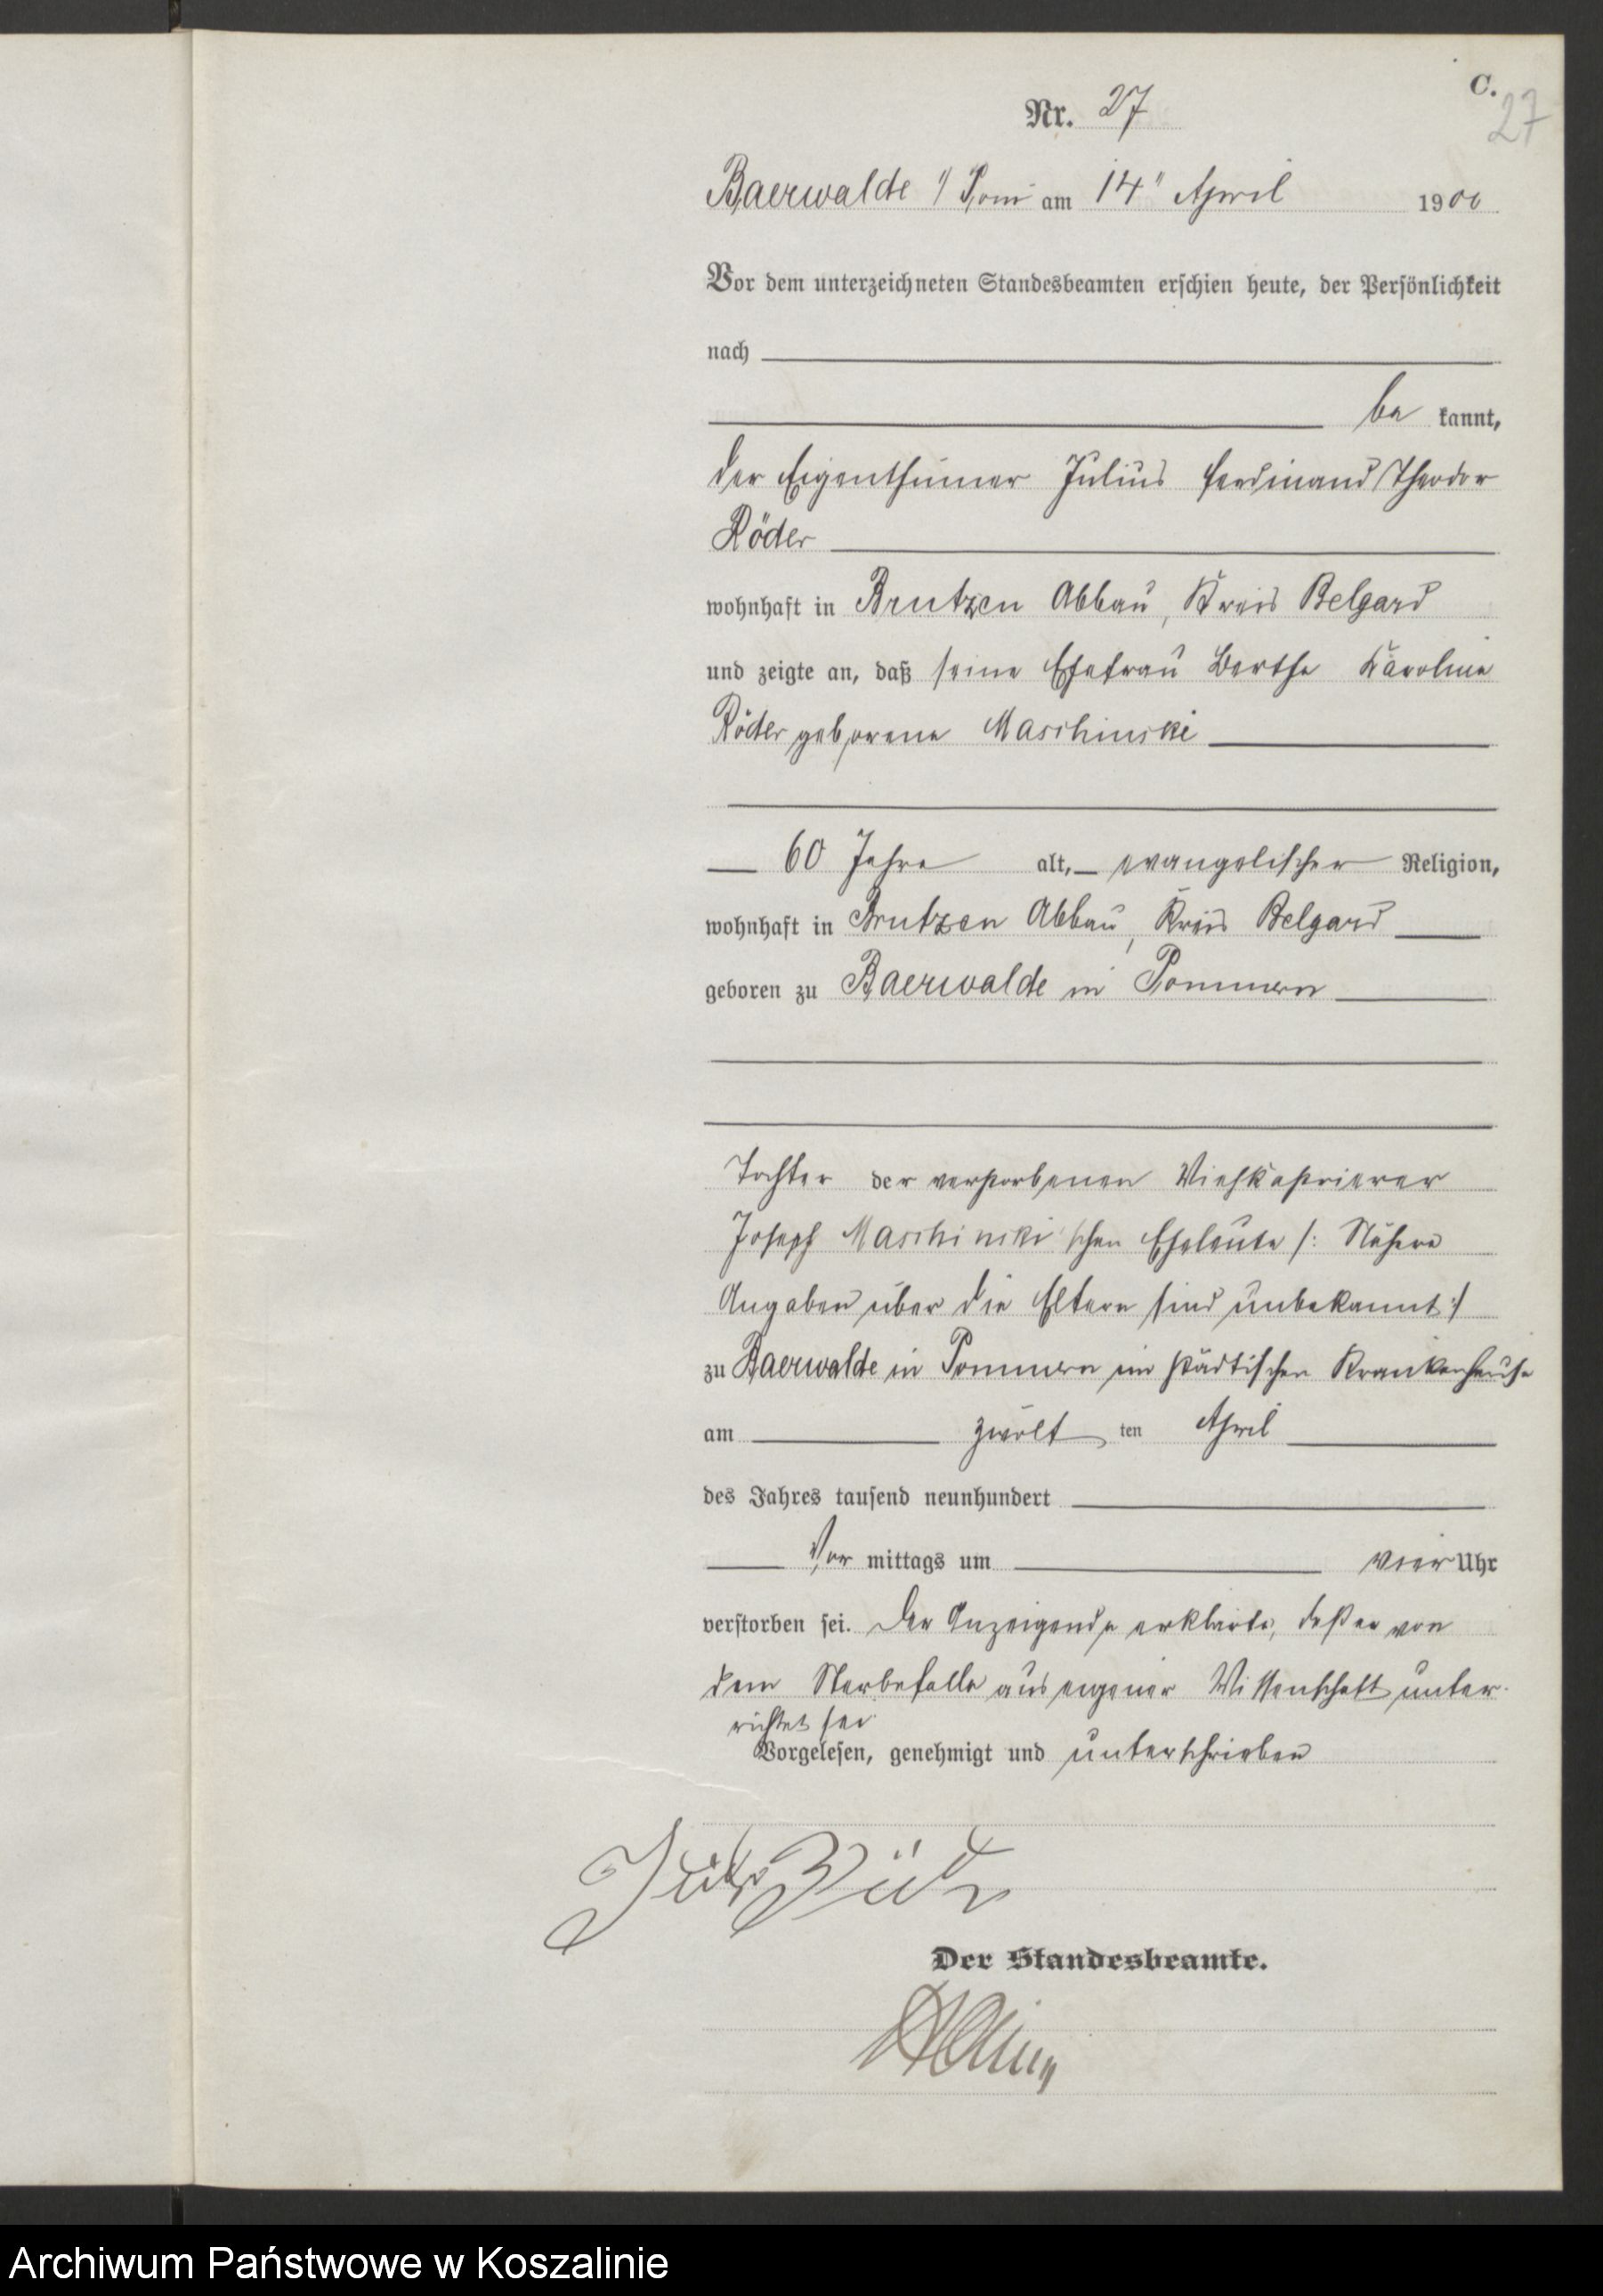 C.
27
Nr. 27
Baerwalde i/ Pom am 14" April 1900
Vor dem unterzeichneten Standesbeamten erschien heute, der Persönlichkeit
nach
be kannt,
der Eigenthümer Julius Ferdinand Theodor
Röder
wohnhaft in Brutzen Abbau, Kreis Belgard
und zeigte an, daß seine Ehefrau Berthe Karoline
Röder geborene Maschinski
60 Jahre alt, evangelischer Religion,
wohnhaft in Brutzen Abbau, Kreis Belgard
geboren zu Baerwalde in Pommern
Tochter der verstorbenen
Joseph Maschinski'schen Eheleute /: Nähere
Angaben über die Eltern sind unbekannt :/
zu Baerwalde in Pommern im städtischen Krankenhause
am zwölf ten April
des Jahres tausend neunhundert
Vor mittags um vier Uhr
verstorben sei. Der Anzeigende erklärte, daß er von
dem Sterbefalle aus eigener Wissenschaft unter-
richtet sei.
Vorgelesen, genehmigt und unterschrieben
Der Standesbeamte.
Archiwum Państwowe w Koszalinie